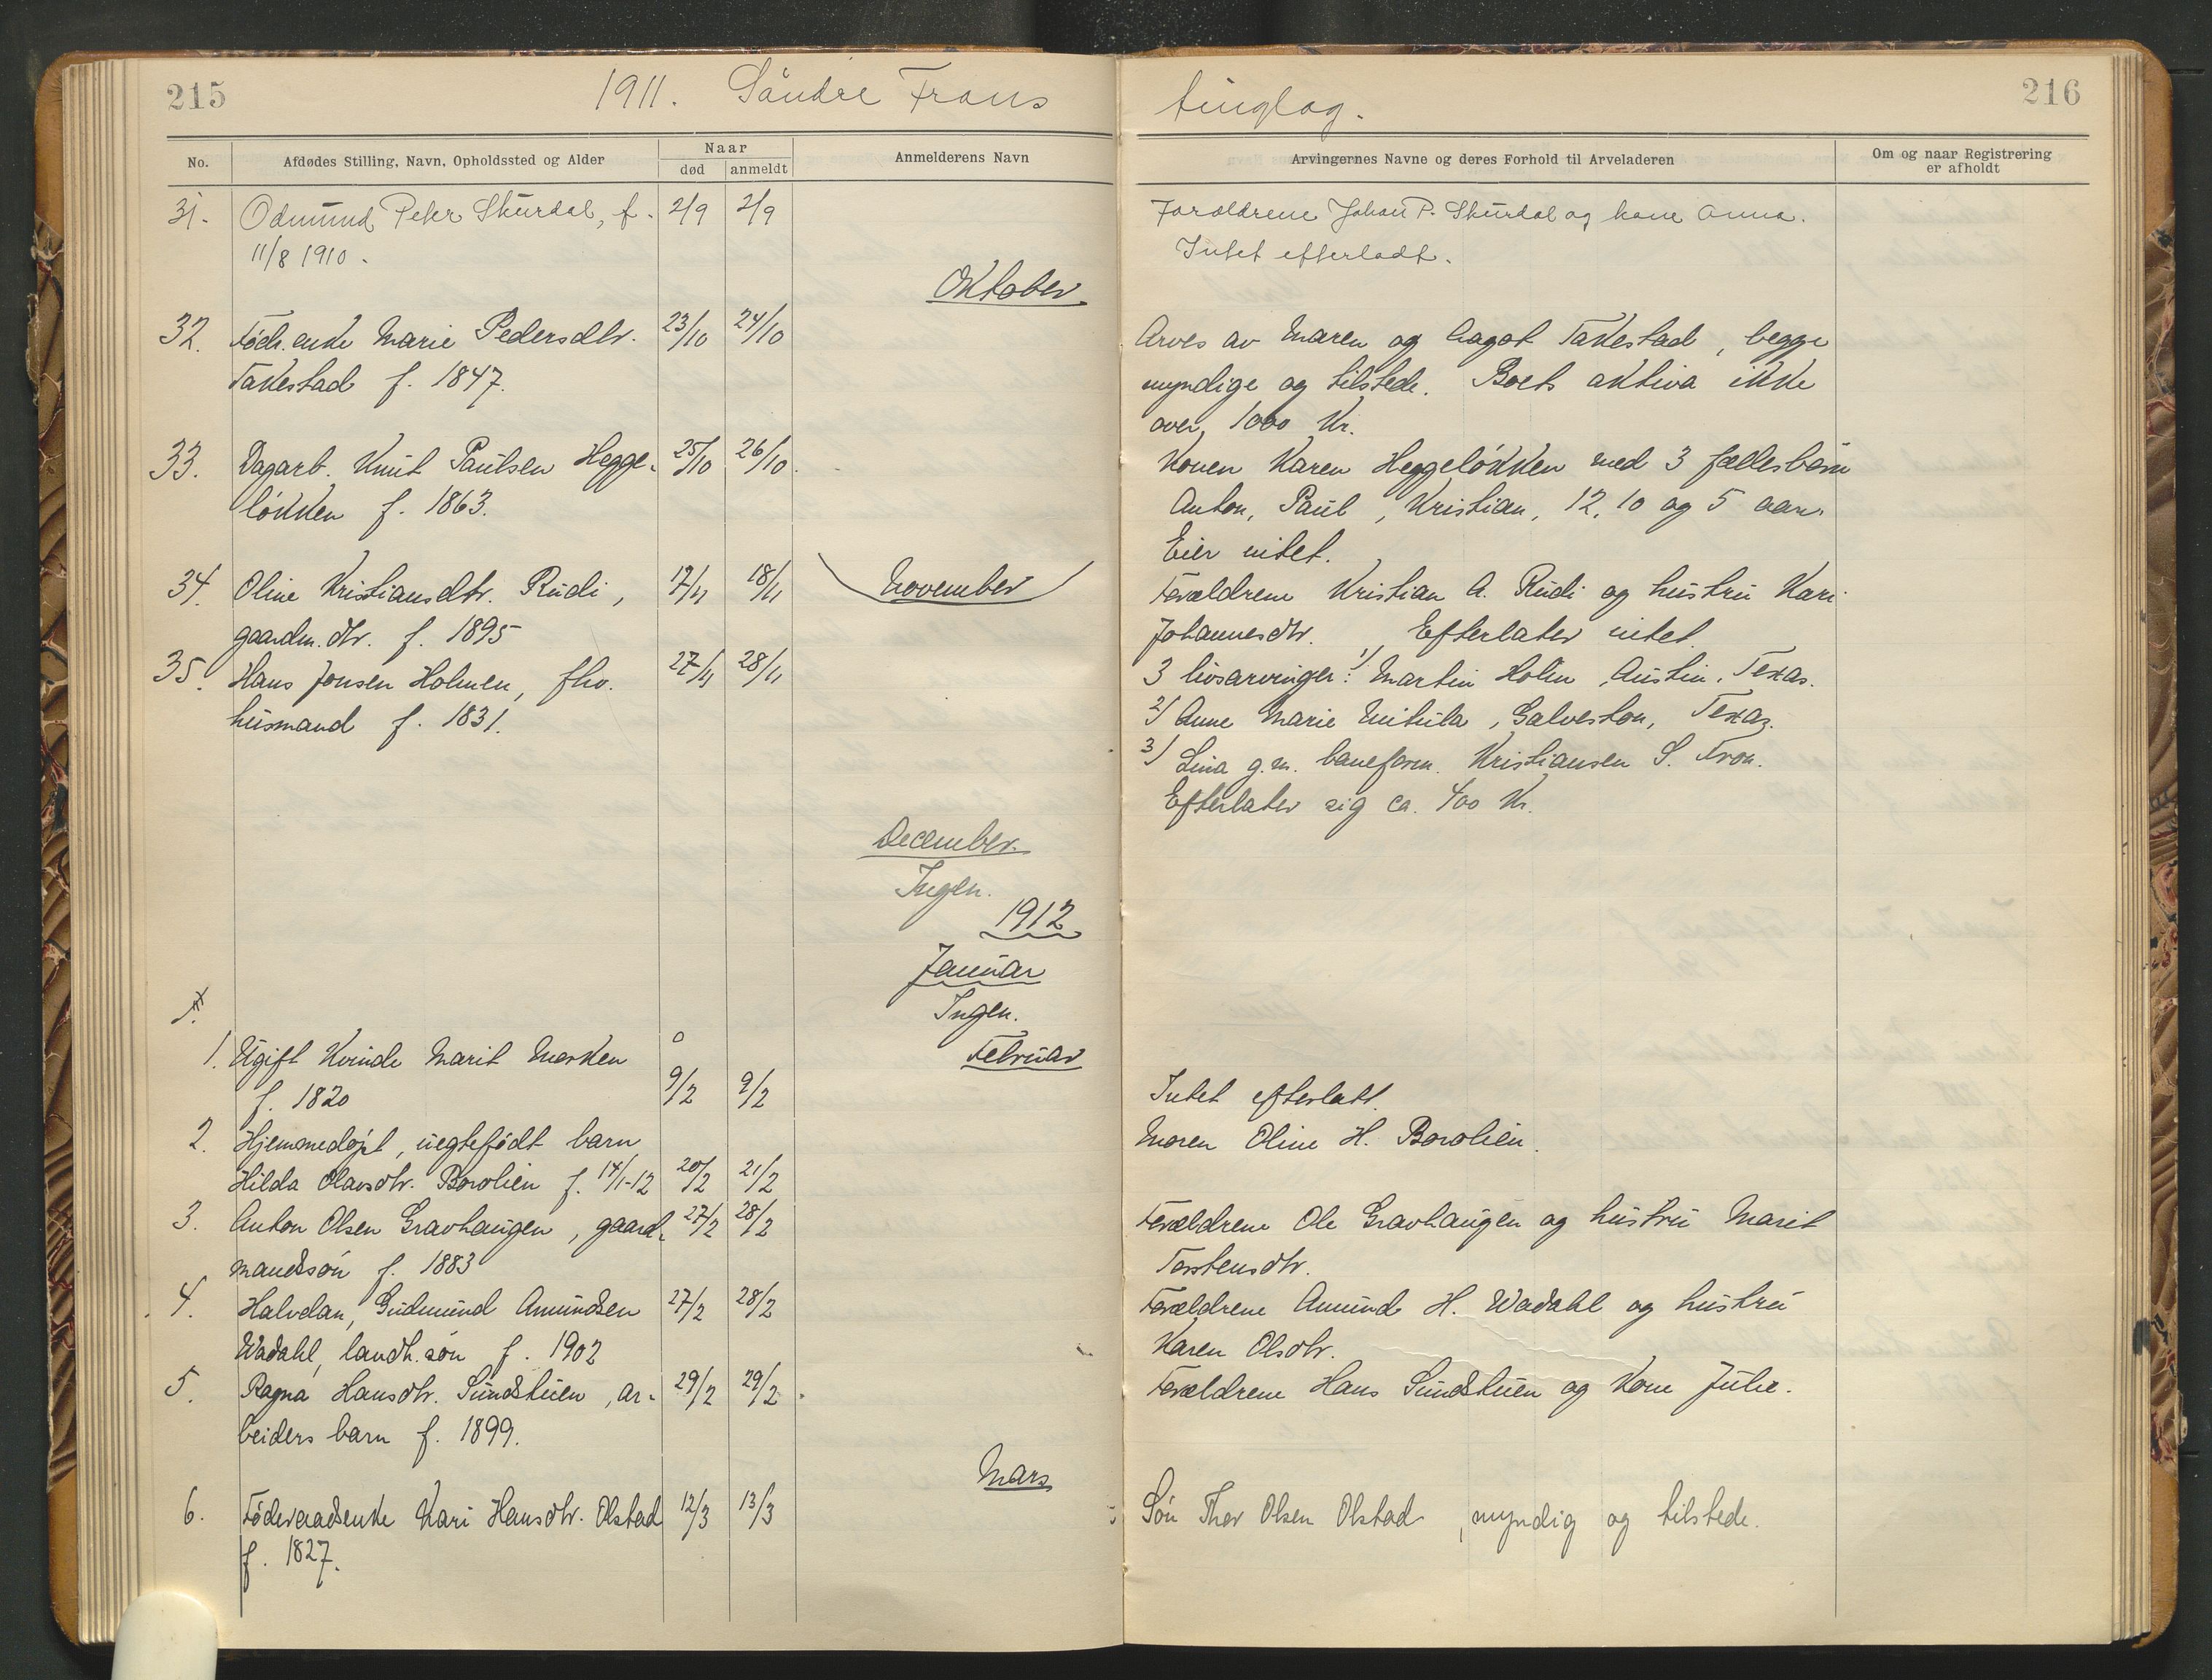 215
1911. Søndre Frons
No.
Afdødes Stilling, Navn, Opholdssted og Alder
Naar
død
anmeldt
Anmelderens Navn
31.
Odmund Peter Skurdal, f.
2/9
2/9
11/8 1910.
Oktober
32.
Föderaadsenke Marie Pedersdtr.
23/10
24/10
Takestad f. 1847.
33.
Dagarb. Knut Paulsen Hegge-
25/10
26/10
løkken f. 1863.
34.
Oline Kristiansdtr. Rudi,
17/11
18/11
November
gaardm. dtr. f. 1895
35.
Hans Jonsen Holmen, fhv.
27/11
28/11
husmand f. 1831.
December.
Ingen.
1912
Januar
Ingen.
1.
Ugift Kvinde Marit Morken
Februar
f. 1820
9/2
9/2
2.
Hjemmedøpt, uegtefødt barn
Hilda Olavsdtr. Borolien f. 14/1-12
20/2
21/2
3.
Anton Olsen Gravhaugen, gaard-
27/2
28/2
mandssøn f. 1883
4.
Halvdan, Gudmund Amundsen
27/2
28/2
Wadahl, landh. søn f. 1902
5.
Ragna Hansdtr. Sundstuen, ar-
29/2
29/2
beiders barn f. 1899.
Mars
6.
Föderaadsenke Kari Hansdtr. Olstad
12/3
13/3
f. 1827.
216
tinglag.
Arvingernes Navne og deres Forhold til Arveladeren
Om og naar Registrering
er afholdt
Forældrene Johan P. Skurdal og kone Anna.
Intet efterladt.
Arves av Maren og Aagot Takestad, begge
myndige og tilstede. Boets aktiva ikke
over 1000 Kr.
Konen Karen Heggeløkken med 3 fællesbørn
Anton, Paul, Kristian, 12, 10 og 5 aar.
Eier intet.
Forældrene Kristian A. Rudi og hustru Kari
Johannesdtr. Efterlater intet.
3 livsarvinger: 1/ Martin Holm, Austin, Texas.
2/ Anne Marie, Galveston, Texas.
3/ Lina g.m. baneform. Kristiansen S. Fron.
Efterlater sig ca. 400 Kr.
Intet efterlatt.
Moren Oline H. Borolien.
Forældrene Ole Gravhaugen og hustru Marit
Torstensdtr.
Forældrene Amund H. Wadahl og hustru
Karen Olsdtr.
Forældrene Hans Sundstuen og Kone Julie.
Søn Thor Olsen Olstad, myndig og tilstede.